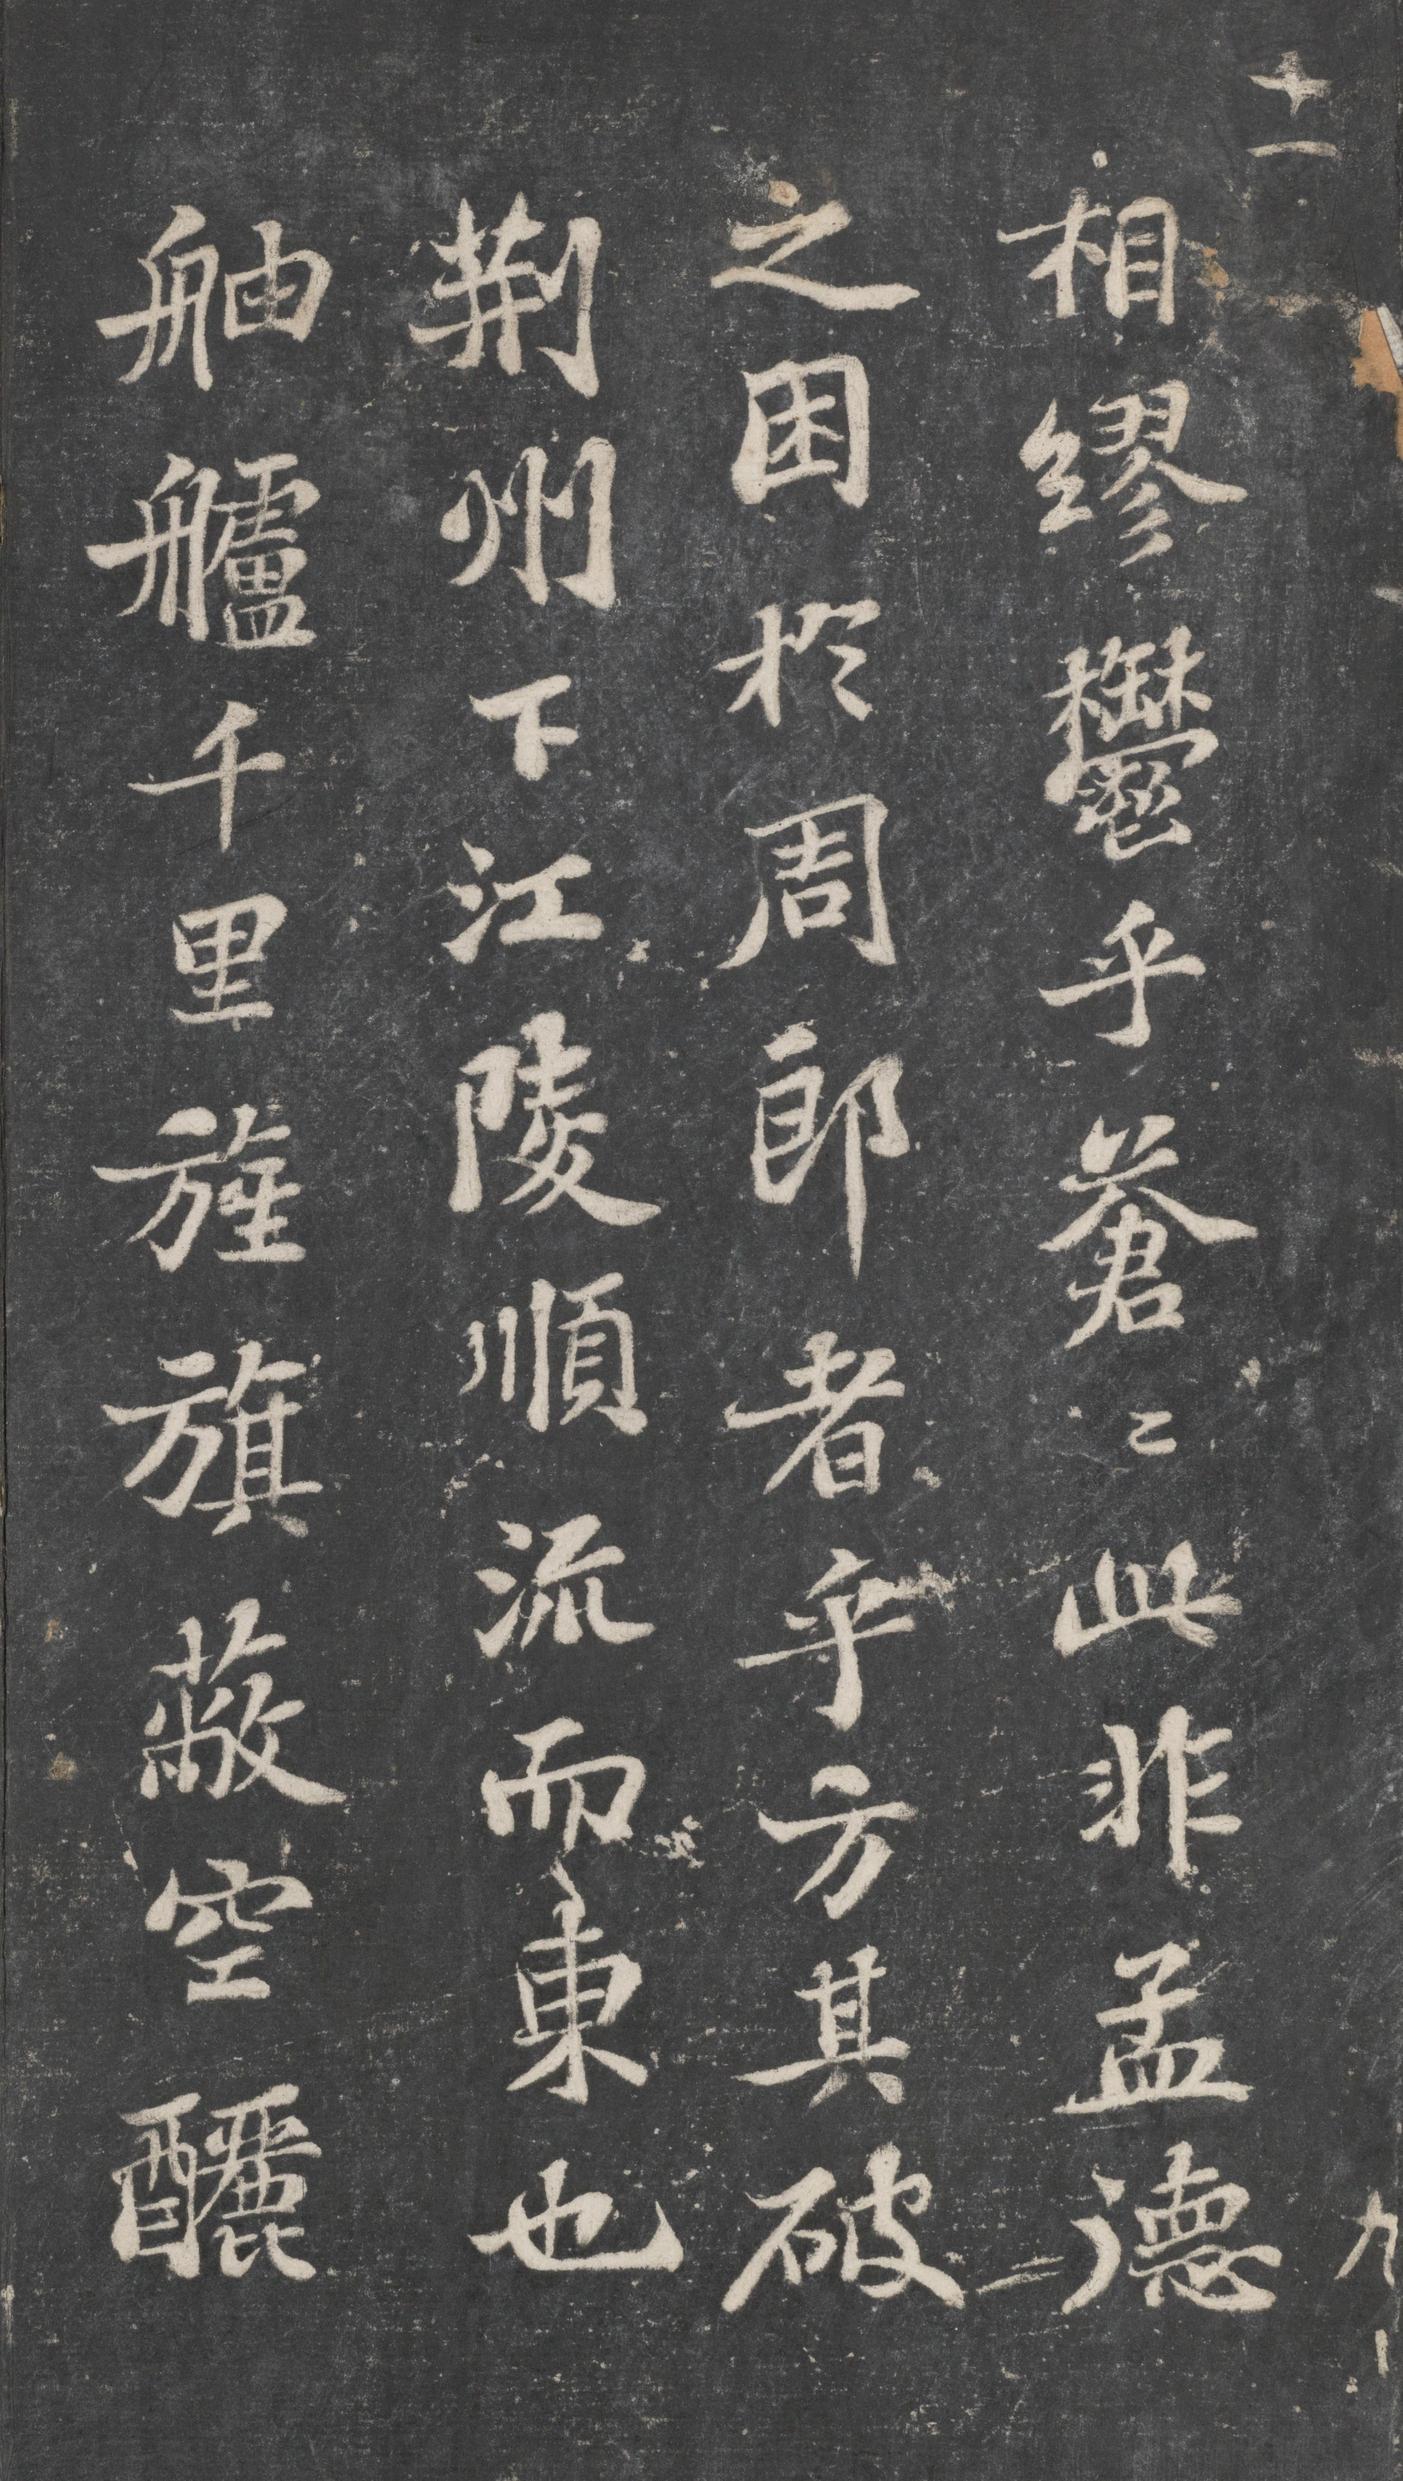 十一
相繆鬱乎蒼〻此非孟德
之困於周郎者乎方其破
荆州下江陵順流而東也
舳艫千里旌旗蔽空釃